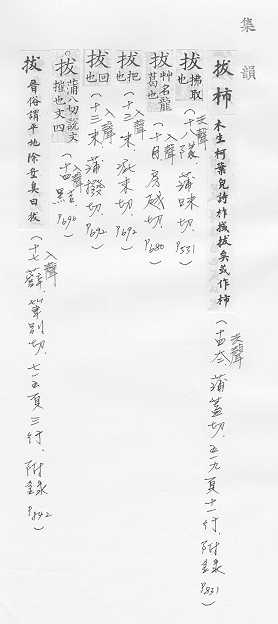 集韻
拔柿 木生柯葉皃詩柞棫拔矣或作柿 (十四太.蒲蓋切.五一九頁十一行.附錄P831) 去聲
拔 拂取也 (十八隊.蒲昧切.P531) 去聲
拔 艸名龍葛也 (十月.房越切.P680) 入聲
拔 把也 (十三末.末切.P692) 入聲
拔 回也 (十三末.蒲撥切.P692) 入聲
拔 蒲八切說文擢也文四 (十四黠.P696) 入聲
拔 俗謂平地除曰拔 (十七薛.筆別切.七一五頁三行.附錄P842) 入聲